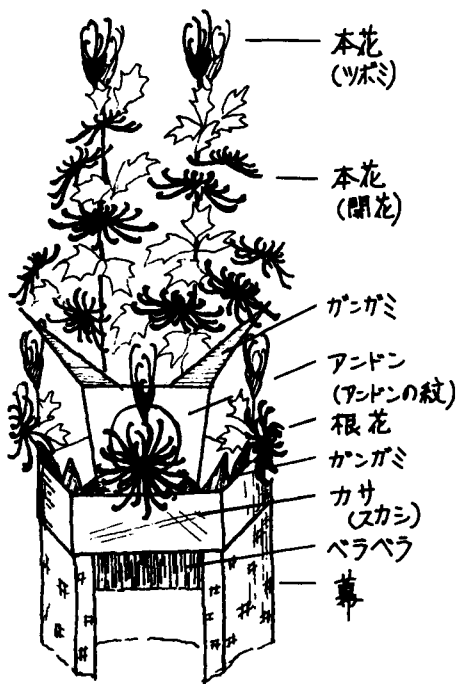 本花
(ツボミ)
本花
(開花)
ガンガミ
アンドン
(アンドンの紋)
根花
ガンガミ
カサ
(スカシ)
ベラベラ
幕